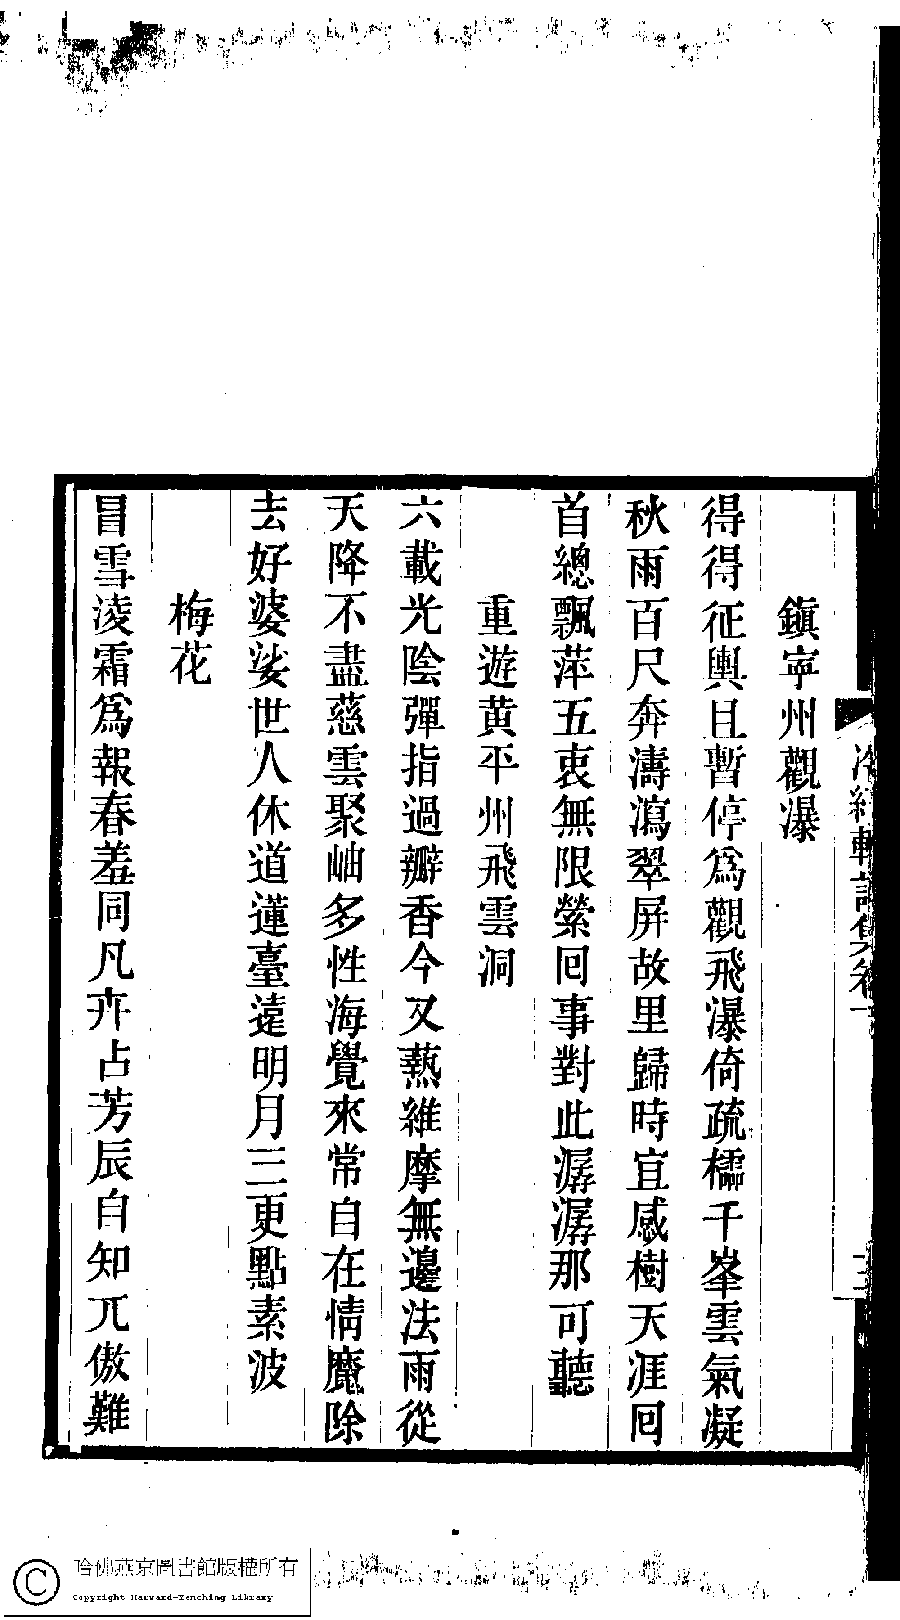 鎮寧州觀瀑
得得征輿且暫停爲觀飛瀑倚疏櫺千峯雲氣凝
秋雨百尺奔濤瀉翠屏故里歸時宜感樹天涯回
首總飄萍五衷無限縈回事對此潺潺那可聽
重遊黃平州飛雲洞
六載光陰彈指過瓣香今又爇維摩無邊法雨從
天降不盡慈雲聚岫多性海覺來常自在情魔除
去好婆娑世人休道蓮臺遠明月三更點素波
梅花
冒雪凌霜爲報春羞同凡卉占芳辰自知兀傲難
哈佛燕京圖書館版權所有
Copyright Harvard-Yenching Library